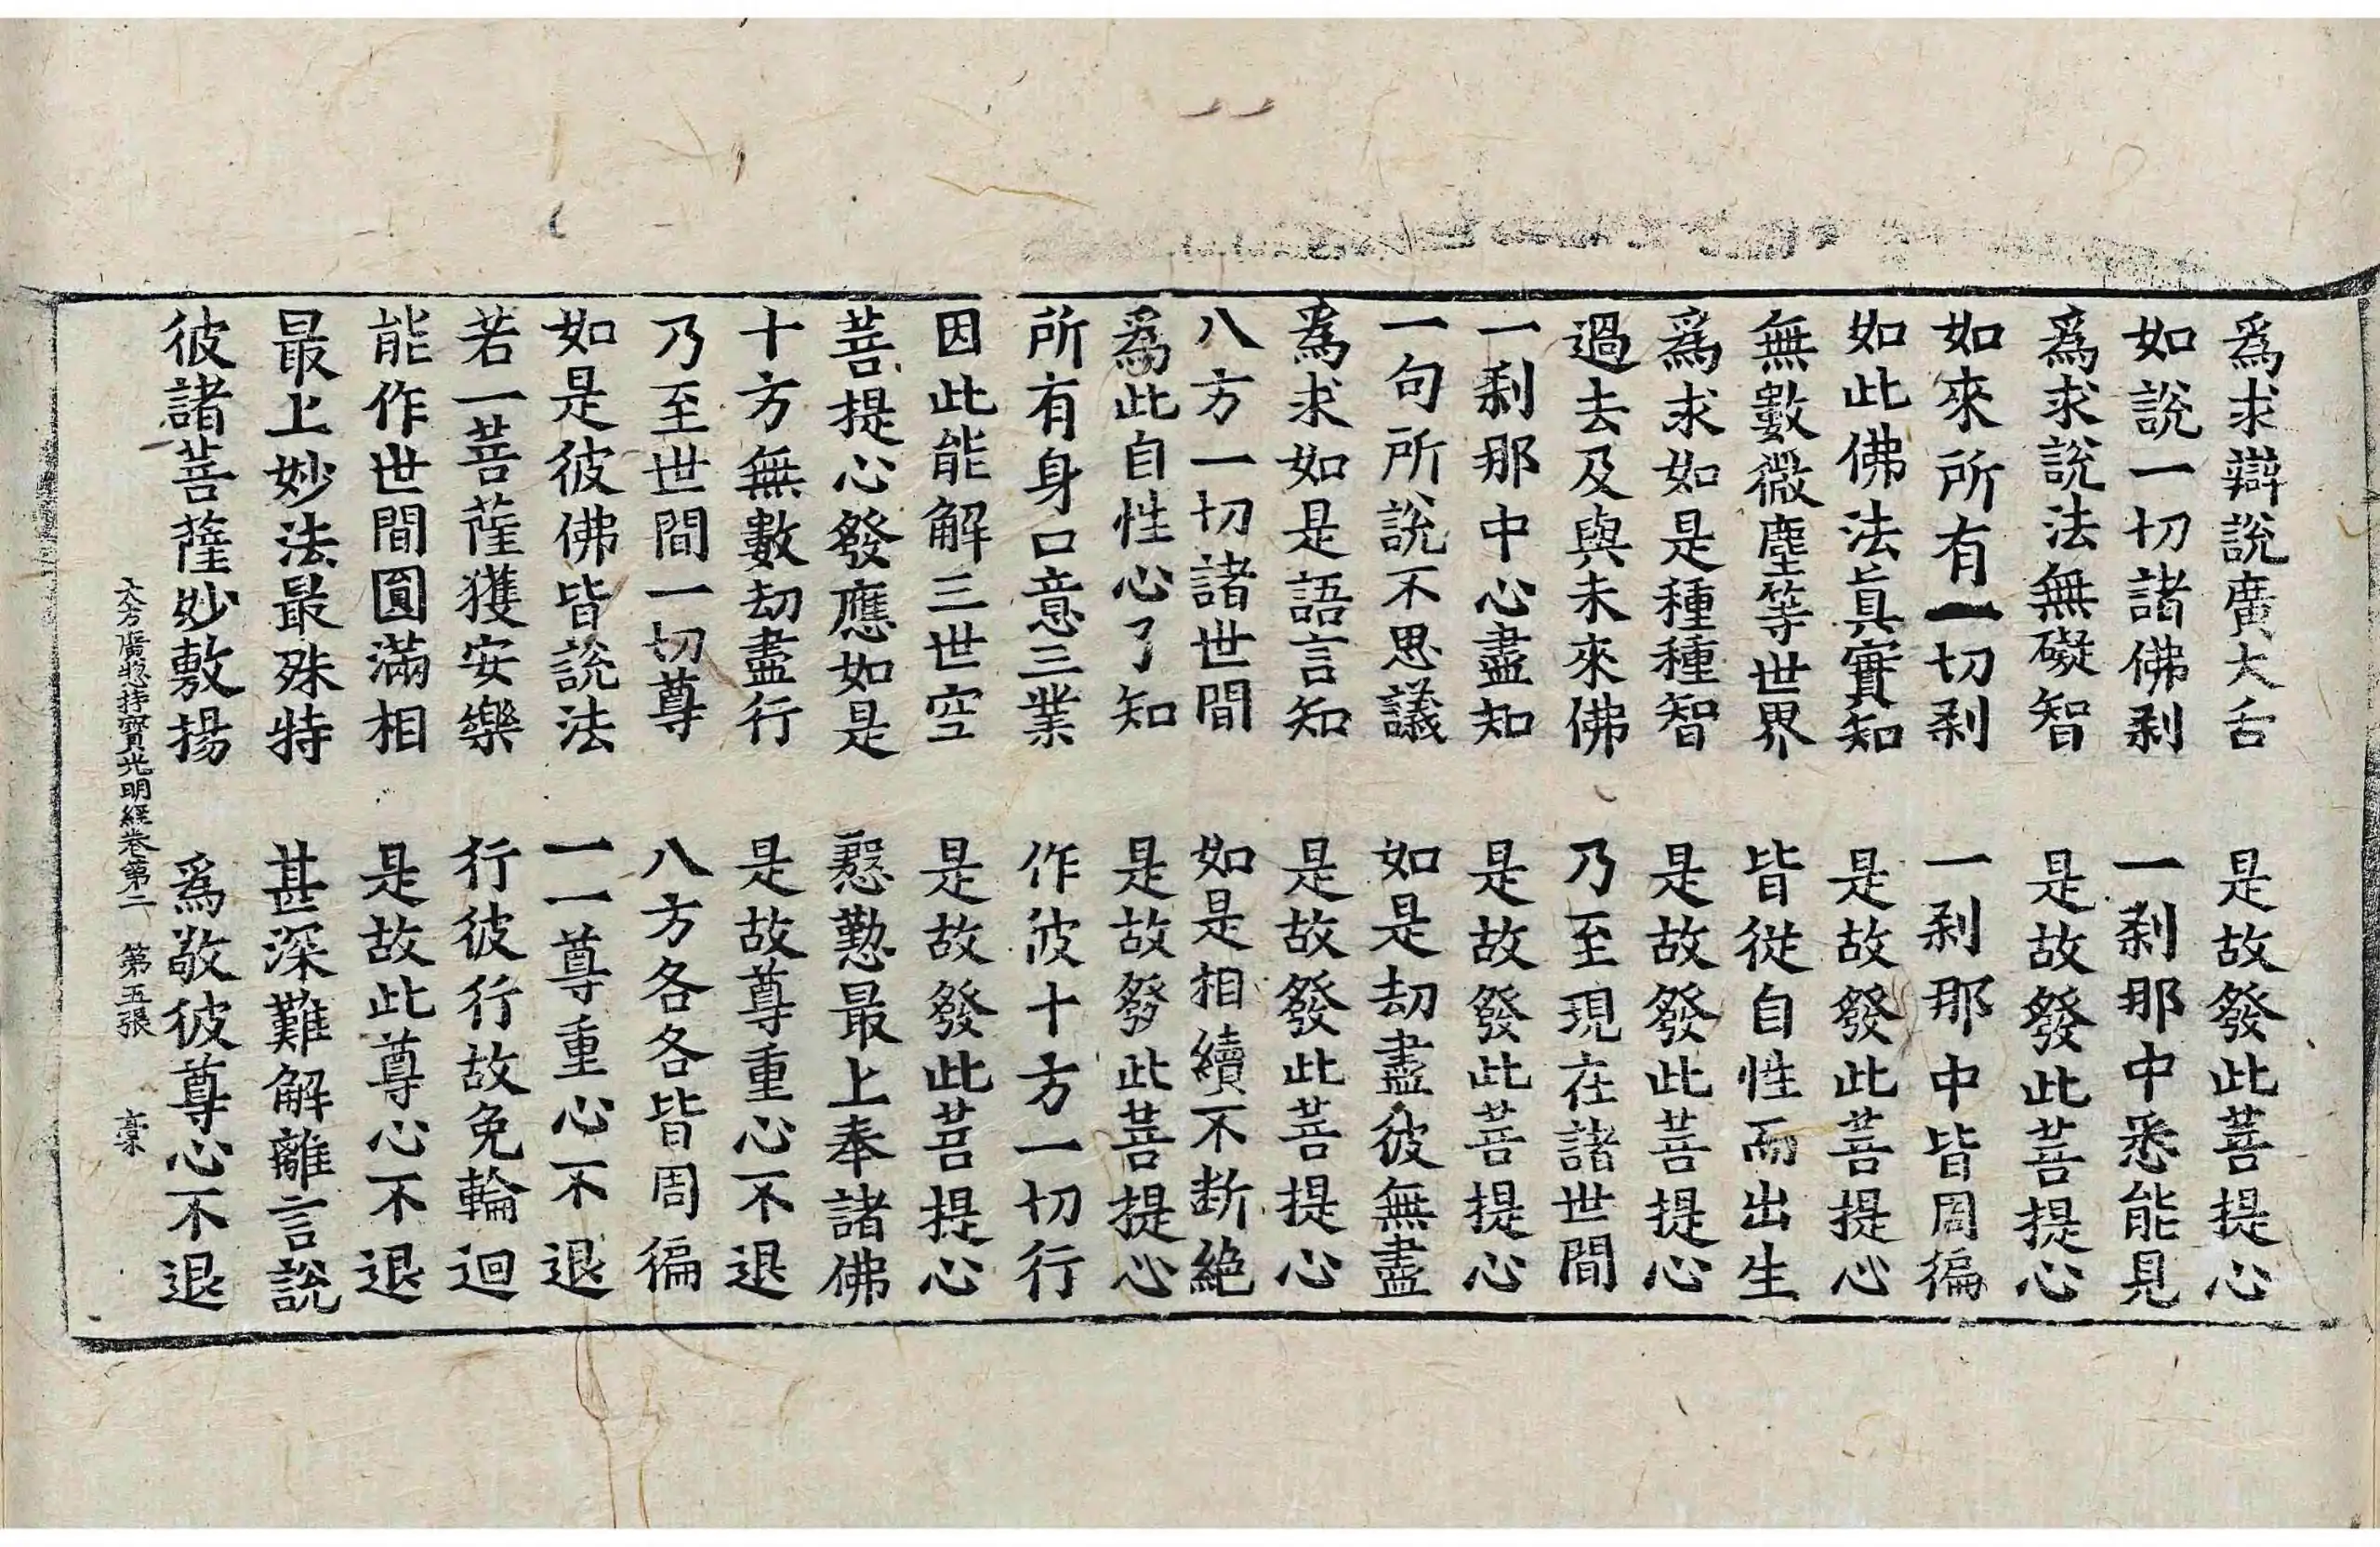 爲求辯說廣大舌　是故發此菩提心
如說一切諸佛刹　一刹那中悉能見
爲求說法無礙智　是故發此菩提心
如來所有一切刹　一刹那中皆周徧
如此佛法眞實知　是故發此菩提心
無數微塵等世界　皆從自性而出生
爲求如是種種智　是故發此菩提心
過去及與未來佛　乃至現在諸世間
一刹那中心盡知　是故發此菩提心
一句所說不思議　如是劫盡彼無盡
爲求如是語言知　是故發此菩提心
八方一切諸世間　如是相續不斷絶
爲此自性心了知　是故發此菩提心
所有身口意三業　作彼十方一切行
因此能解三世空　是故發此菩提心
菩提心發應如是　慇懃最上奉諸佛
十方無數劫盡行　是故尊重心不退
乃至世間一切尊　八方各各皆周徧
如是彼佛皆說法　一一尊重心不退
若一菩薩獲安樂　行彼行故免輪迴
能作世間圓滿相　是故此尊心不退
最上妙法最殊特　甚深難解離言說
彼諸菩薩妙敷揚　爲敬彼尊心不退
大方廣揔持寶光明經卷第二　第五張　稾